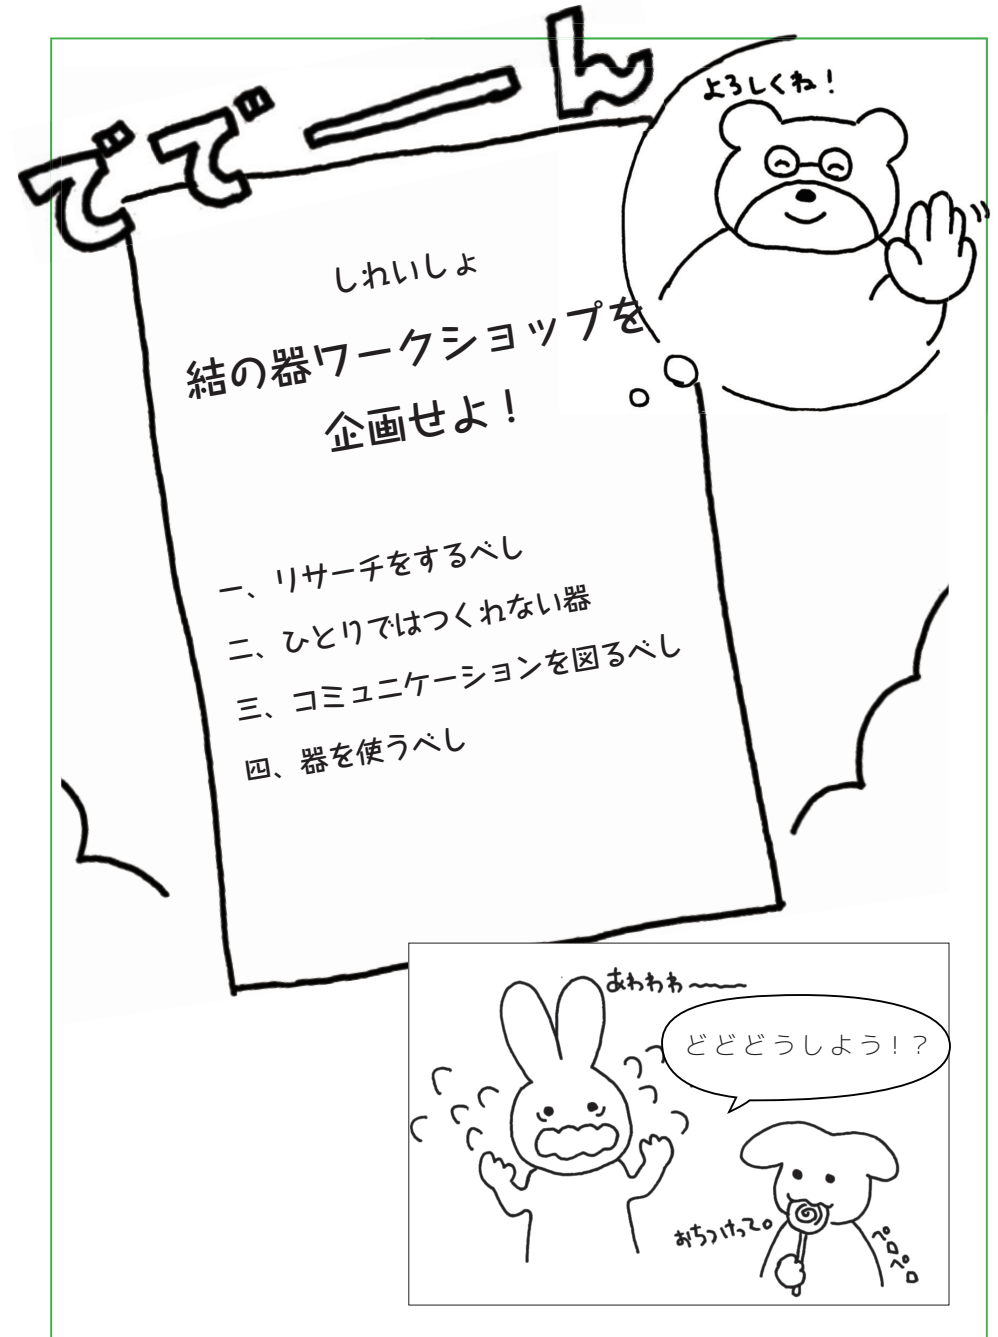 ででーん
よろしくね！
しれいしょ
結の器ワークショップを
企画せよ！
一、リサーチをするべし
二、ひとりではつくれない器
三、コミュニケーションを図るべし
四、器を使うべし
あわわわ〜〜〜
どどどうしよう！？
おちつけって。
ペロペロ